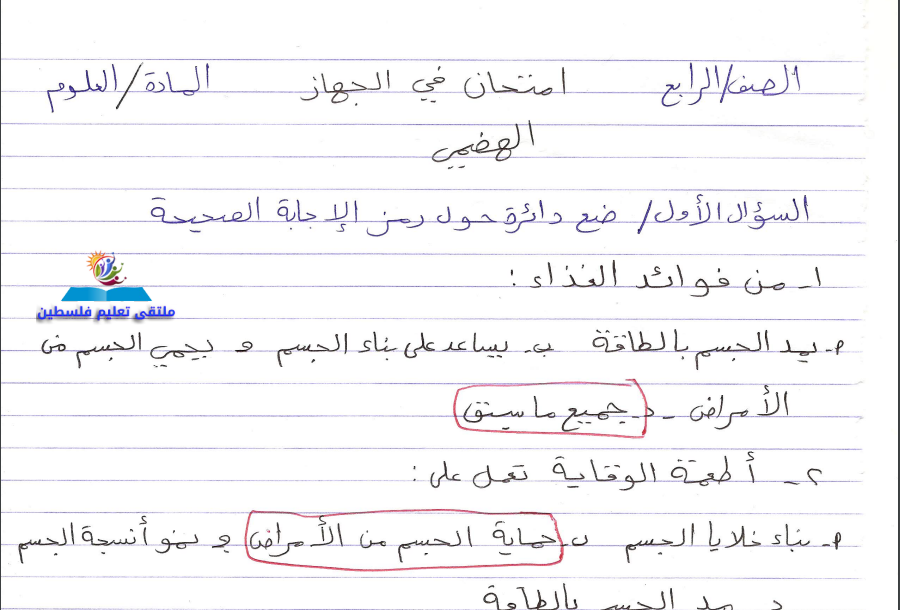 الصف/الرابع امتحان في الجهاز المادة/العلوم
الهضمي
السؤال الأول/ ضع دائرة حول رمز الإجابة الصحيحة
١- من فوائد الغذاء :
ملتقى تعليم فلسطين
م- يمد الجسم بالطاقة ب- يساعد على بناء الجسم و يحمي الجسم من
الأمراض - د- جميع ما سبق
٢- أطعمة الوقاية تعمل على :
م- بناء خلايا الجسم ب- حماية الجسم من الأمراض ج- نمو أنسجة الجسم
د- يمد الجسم بالطاقة